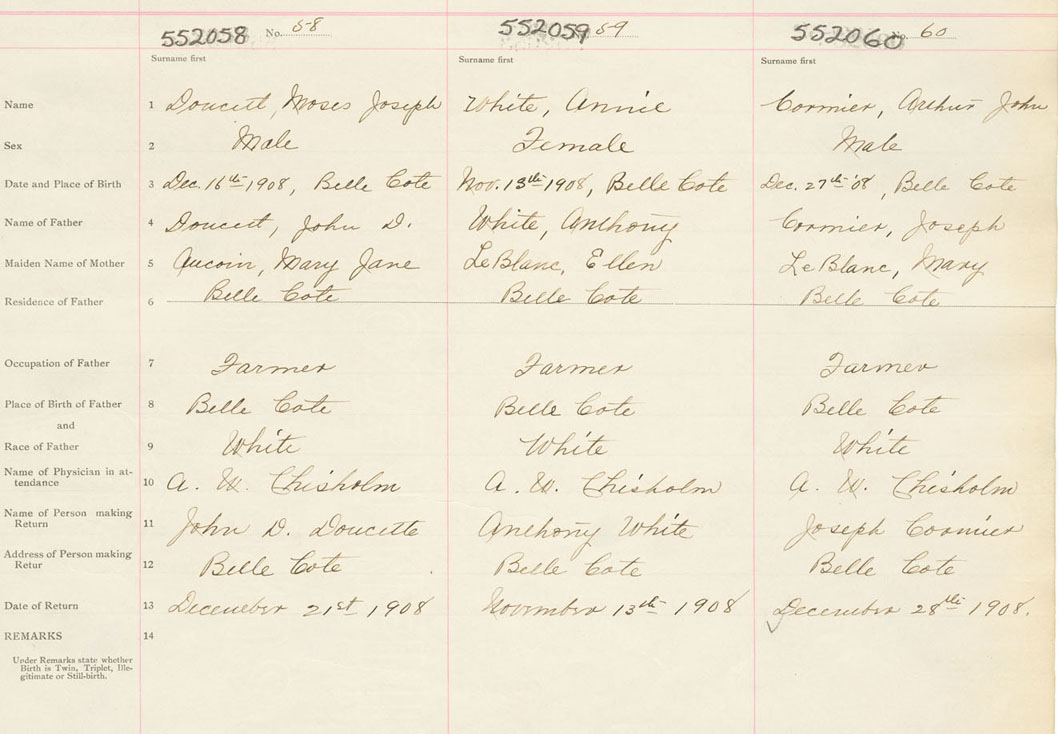 552058 No. 58 552059 59 552060 No. 60
Surname first Surname first Surname first
Name 1 Doucett, Moses Joseph White, Annie Cormier, Arthur John
Sex 2 Male Female Male
Date and Place of Birth 3 Dec. 16th 1908, Belle Cote Nov. 13th 1908, Belle Cote Dec. 27th '08, Belle Cote
Name of Father 4 Doucett, John D. White, Anthony Cormier, Joseph
Maiden Name of Mother 5 Aucoin, Mary Jane LeBlanc, Ellen LeBlanc, Mary
Residence of Father 6 Belle Cote Belle Cote Belle Cote
Occupation of Father 7 Farmer Farmer Farmer
Place of Birth of Father 8 Belle Cote Belle Cote Belle Cote
and
Race of Father 9 White White White
Name of Physician in at-
tendance 10 A. W. Chisholm A. W. Chisholm A. W. Chisholm
Name of Person making
Return 11 John D. Doucette Anthony White Joseph Cormier
Address of Person making
Retur 12 Belle Cote Belle Cote Belle Cote
Date of Return 13 December 21st 1908 November 13th 1908 December 28th 1908.
REMARKS 14
Under Remarks state whether
Birth is Twin, Triplet, Ille-
gitimate or Still-birth.